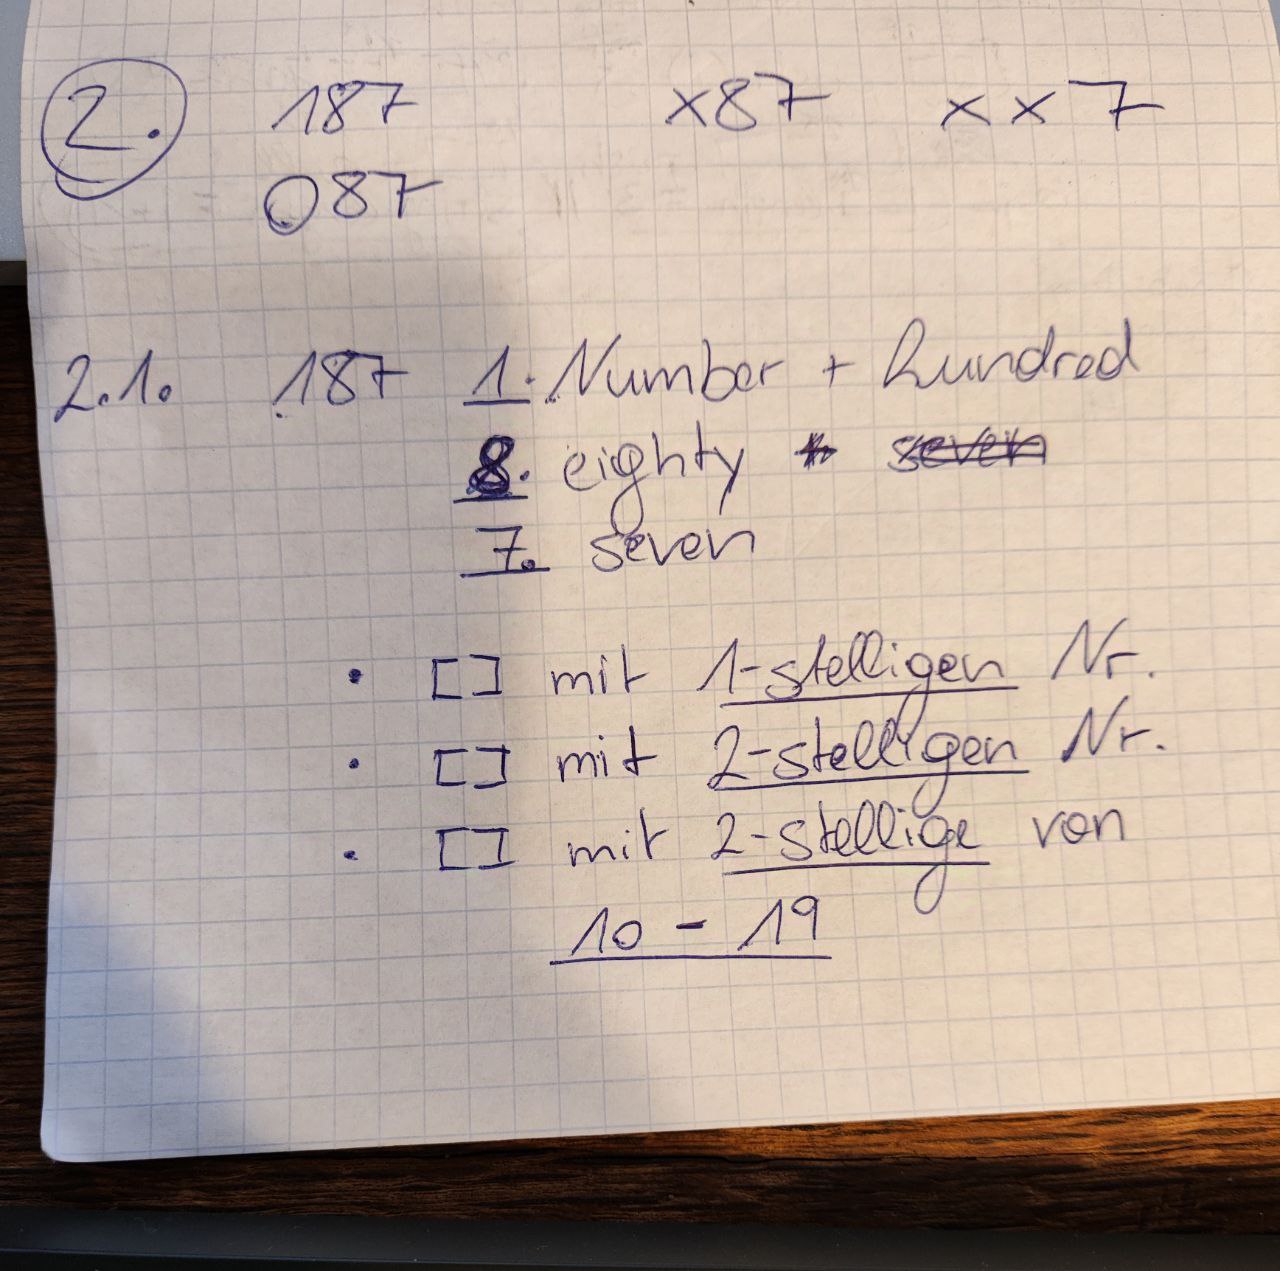 2. 187 x87 xx7
087
2.1. 187 1. Number + hundred
8. eighty
7. seven
• [] mit 1-stelligen Nr.
• [] mit 2-stelligen Nr.
• [] mit 2-stellige von
10 - 19